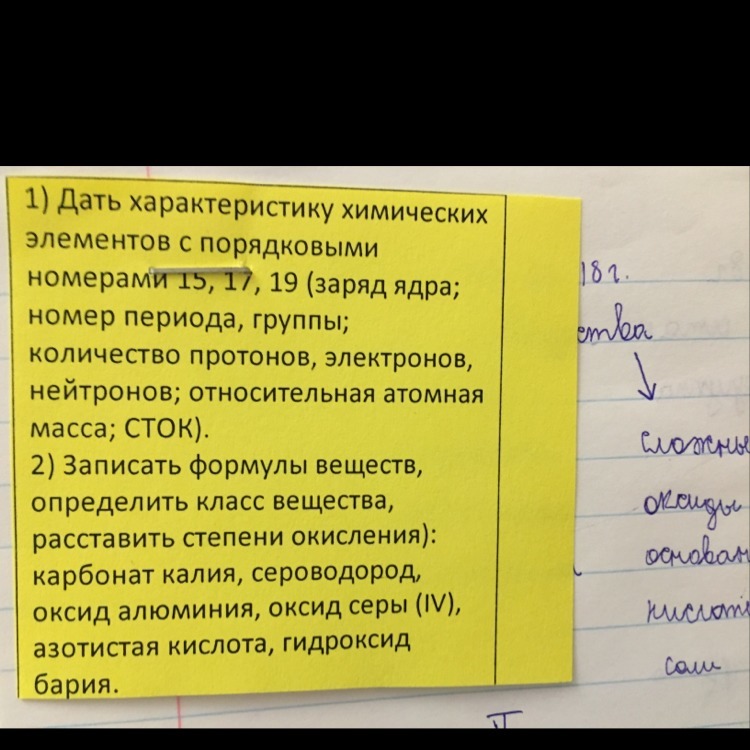 1) Дать характеристику химических
элементов с порядковыми
номерами 15, 17, 19 (заряд ядра;
номер периода, группы;
количество протонов, электронов,
нейтронов; относительная атомная
масса; СТОК).
2) Записать формулы веществ,
определить класс вещества,
расставить степени окисления):
карбонат калия, сероводород,
оксид алюминия, оксид серы (IV),
азотистая кислота, гидроксид
бария.
18г.
ства
сложные
оксиды
основан
кислот
соли